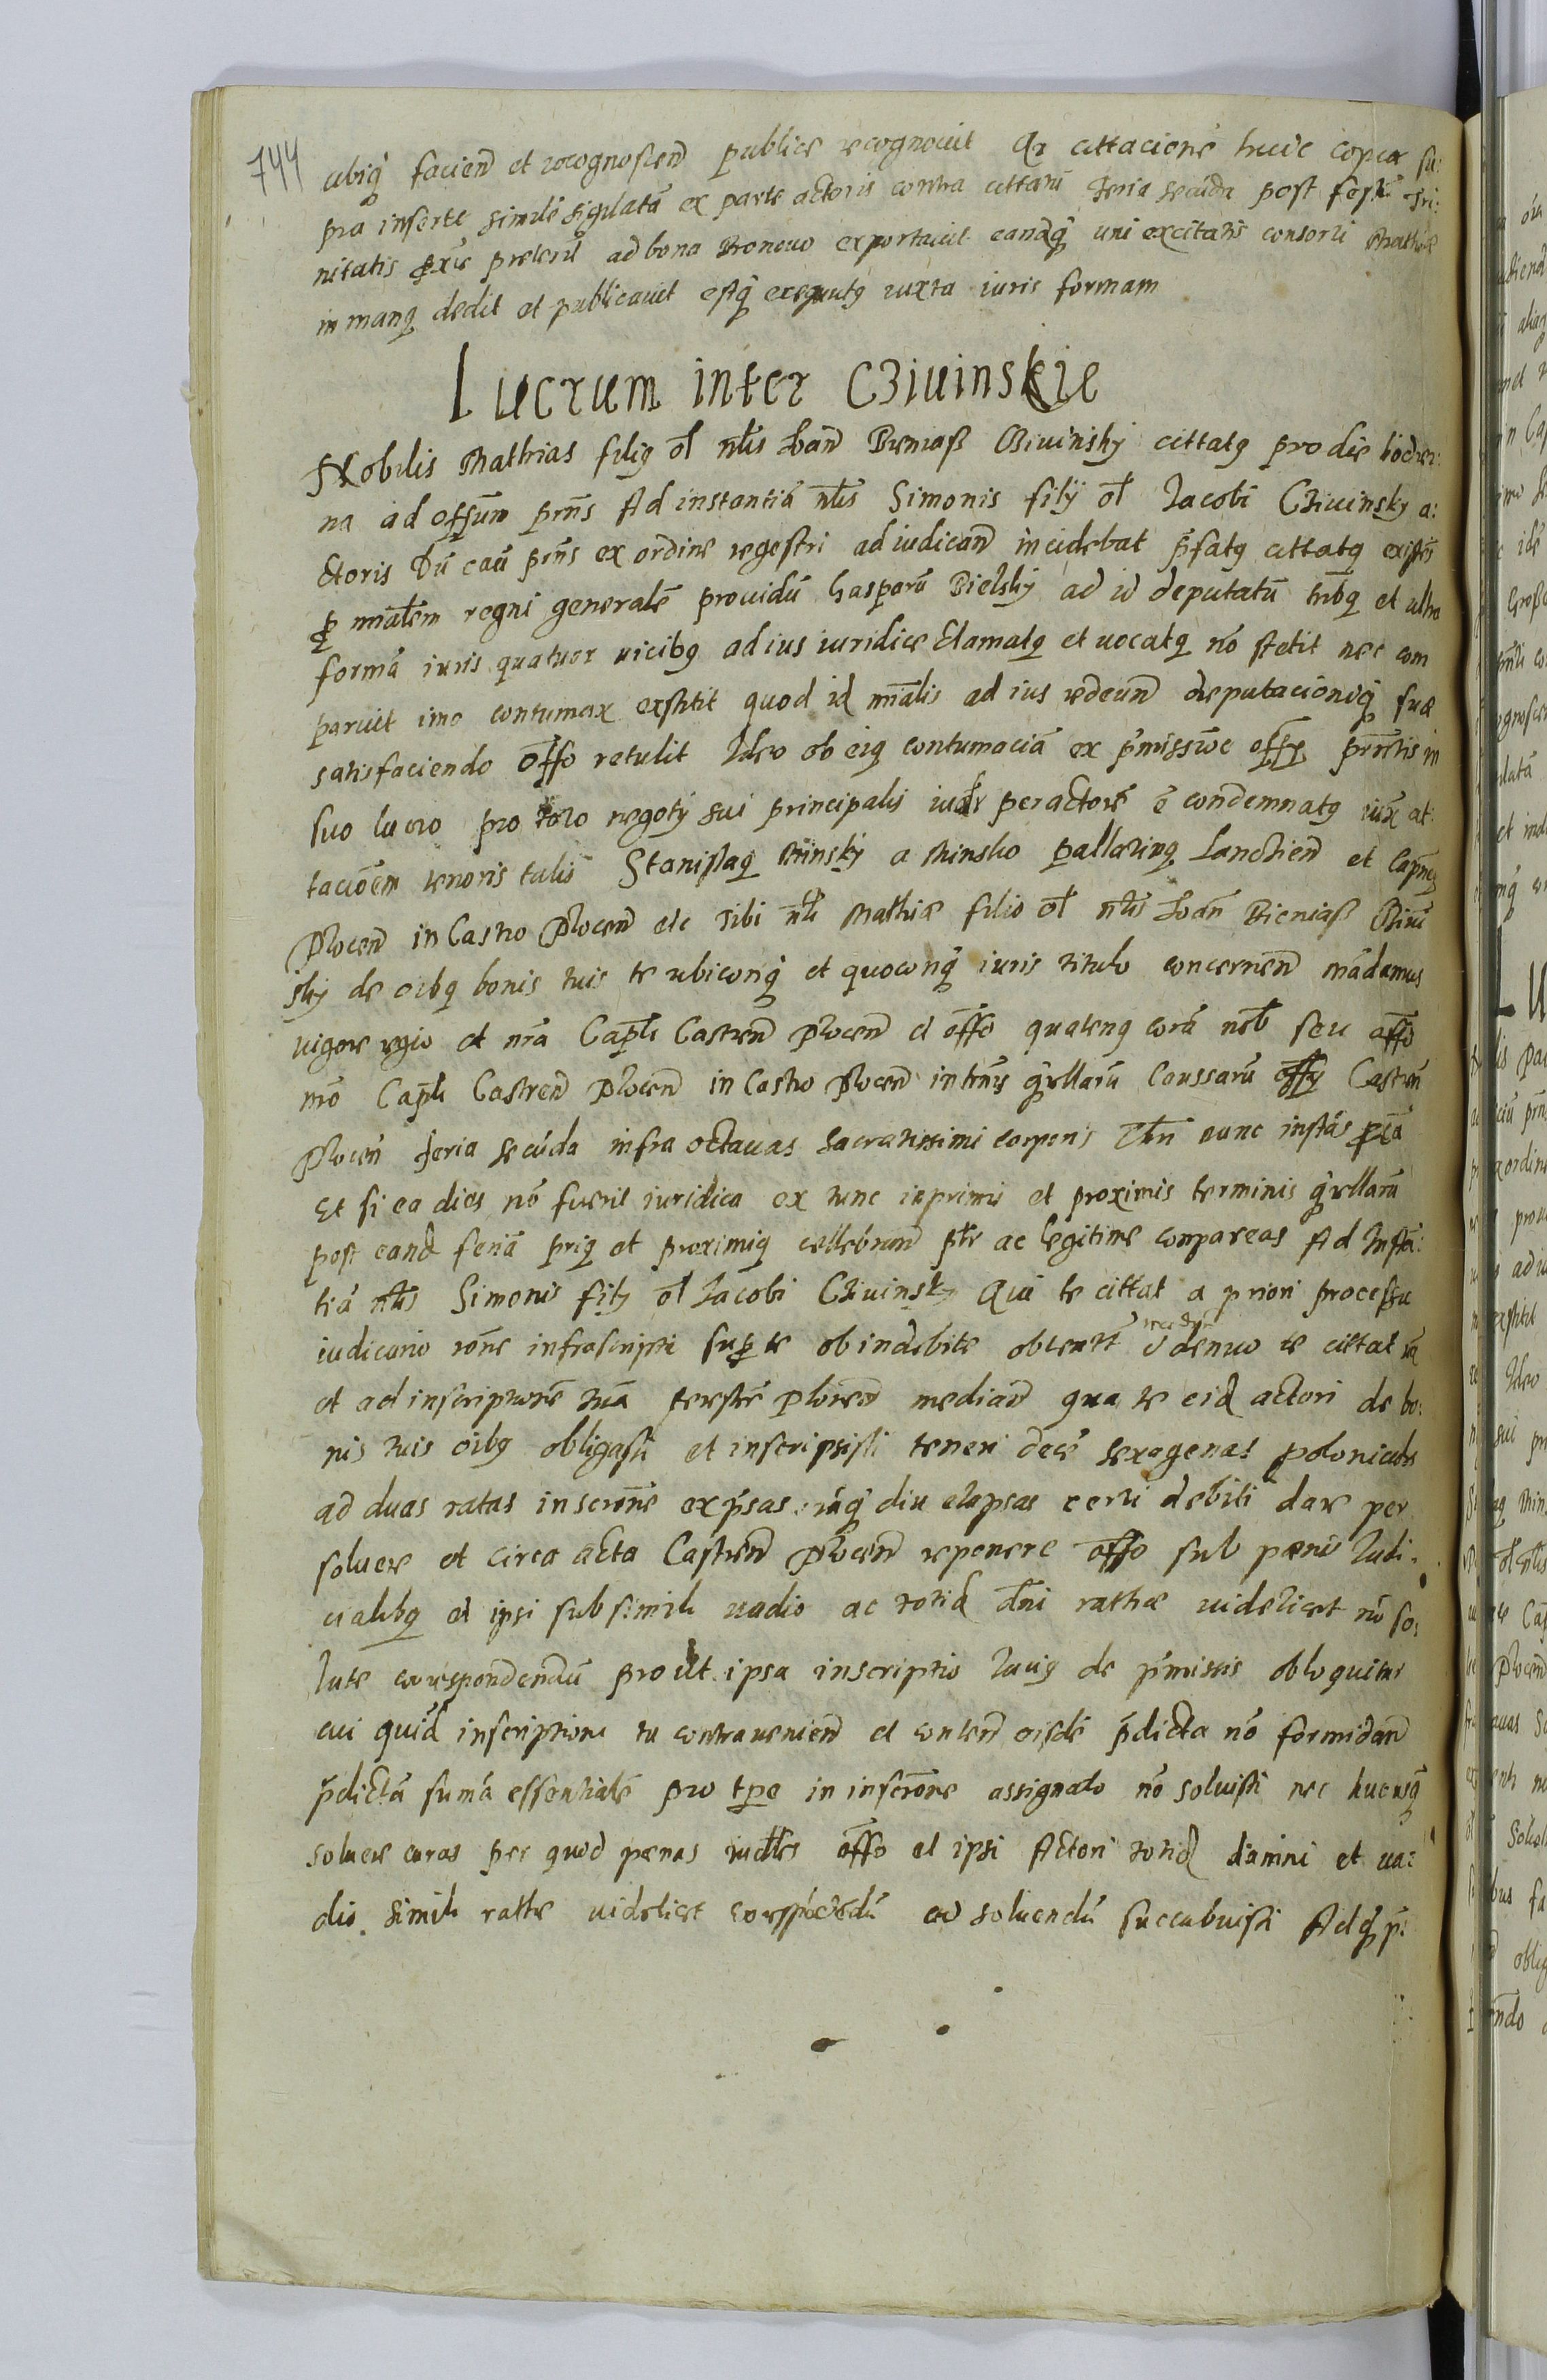 744
ubiq̃ facien̄ et recognoscen̄ publice recognovit Qr cittacionē huic copiæ su:
pra inserte similē sigilatā ex parte actoris contra cittatū feria secūda post festū Tri:
nitatis pxīe preterit ad bona exportavit eandq̃ uni ex citatis consorti Mathiæ
in manq dedit et publicavit estq̃ exequutq iuxta iuris formam
Lucrum inter Cziuinskie
Nobilis Mathias filiq ol nlis Ioan̄ Bieniaß Cziuinskÿ cittatq pro die hodier:
na ad offūm prn̄s Ad instantiā nlis Simonis filÿ ol Iacobi Cziuinsky a:
ctoris Dū caū prn̄s ex ordine regestri adiudican̄ incidebat p̄fatq cittatq existēs
p mn̄alem regni generalē providū Gasparū Bielskÿ ad id deputatū trībq et ultra
formā iuris quatuor vicibq ad ius iuridice clamatq et vocatq nō stetit nec com
paruit imo contumax exstitit quod id mn̄alis ad ius redeun̄ deputacioniq̃ suæ
satisfaciendo off̄o retulit Ideo ob eiq contumaciā ex p̄missiōe offÿ prn̄tis in
suo lucro pro toto negotÿ sui principalis per actorē ē condemnatq iux̄ at:
tacōem tenoris talis Stanislaq Minskÿ a Minsko pallatinq Lancicien̄ et Capneq
Plocen̄ in Castro Plocen̄ etc Tibi nli Mathiæ filio ol nlis Ioan̄ Bieniaß Cziui
skÿ de oībq bonis tuis te ubicōnq̃ et quocōnq̃ iuris titulo concernen̄ mādamus
vigore regio et nrā Capli Castren̄ Plocen̄ et off̄o quatenq corā nob seu off̄o
nrō Capli Castren̄ Plocen̄ in Castro Plocen̄ in trn̄is q̄rellarū Caussarū offÿ Castren̄
Plocen̄ feria secūda infra octavas Sacratissimi corporis Chri nunc instās pcīa
Et si ea dies nō fuerit iuridica ex tunc in primis et proximis terminis q̄rellarū
post eand feriā priq et proximiq cellebran̄ ptr ac legitime compareas Ad Instā:
tiā nlis Simonis filÿ ol Iacobi Cziuinskÿ Qui te cittat a priori processu
iudiciario rōne infrascripti sup te ob indebite obtent̄ denuo te cittat
et ad inscriptionē tuā terstrē Plocen̄ median̄ qua te eid actori de bo:
nis tuis oībq obligasti et inscripsisti teneri decē sexagenas polonicales
ad duas ratas in scrōne exp̄sas iāq̃ diu elapsas certi debiti dare per
solvere et circa acta Castren̄ Plocen̄ reponere off̄o sub pœnis Iudi:
cialibq et ipsi sub simili vadio ac totid dn̄i rathæ videlicet nō so:
lute correspondendū prout ipsa inscriptio laciq de p̄missis obloquitur
cui quid inscriptioni tu contravenien̄ et conten̄ eisdē p̄dicta nō formidan̄
p̄dictā sumā essentialē pro tpe in inscrōne assignato nō solvisti nec hucusq̃
solvere curas per quod pœnas iudles off̄o et ipsi Actori totid damni et va:
dio simili rathe videlicet correspōdēdū ad solvendū succubuisti Adq̃ p̄: